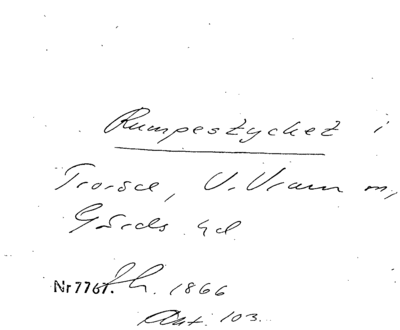 Rumpestycket i
Trorod, V. Vram m,
Gärds hd
Nr 7767. Sk. 1866
Akt. 103.